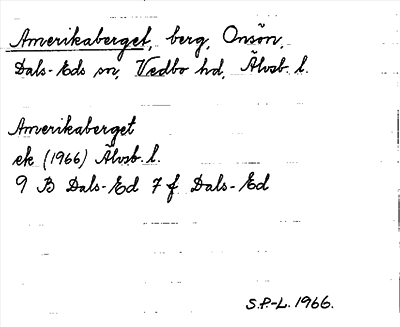 Amerikaberget, berg, Onsön,
Dals-Eds sn, Vedbo hd, Älvsb. l.
Amerikaberget
ek (1966) Älvsb. l.
9 B Dals-Ed 7 f Dals-Ed
S.P.-L. 1966.